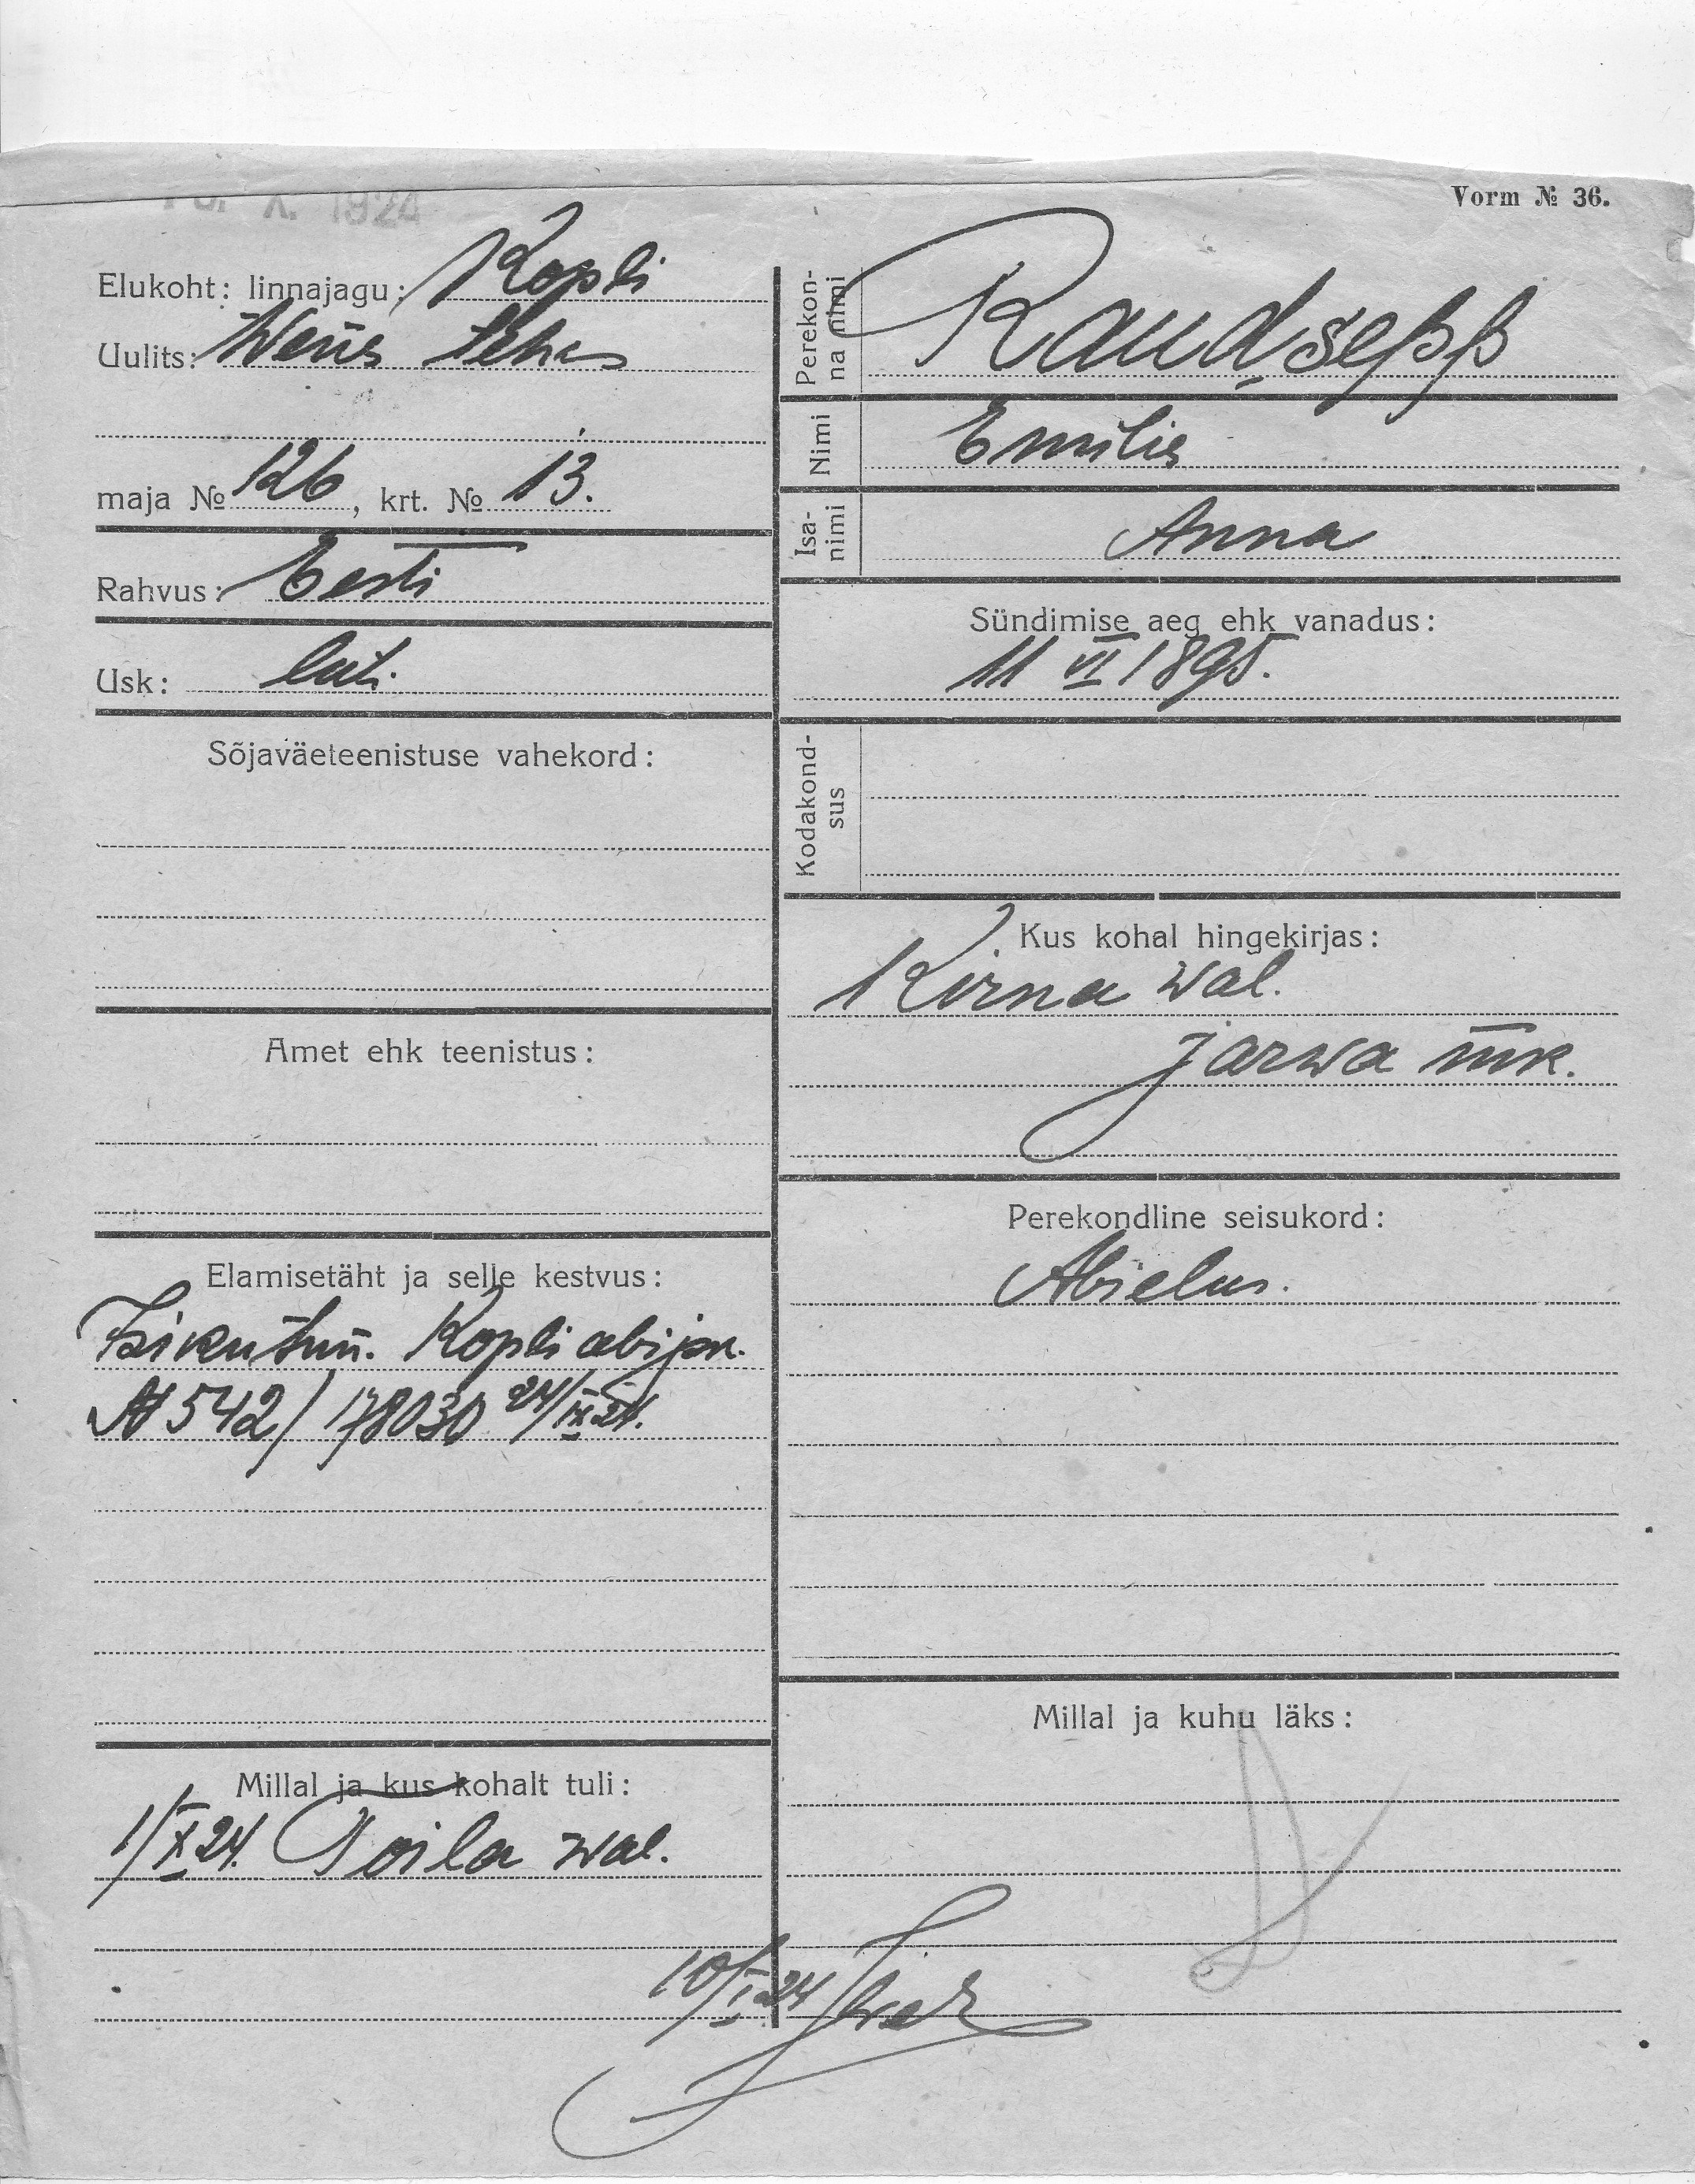 X. 1924
Vorm № 36.
Elukoht: linnajagu: Kopli
Uulits: Wene
maja № 126, krt. № 13.
Rahvus: Eesti
Usk: lut.
Sõjaväeteenistuse vahekord:
Amet ehk teenistus:
Elamisetäht ja selle kestvus:
Isikutun. Kopli abijsk.
A 542/178030 24/IX 24.
Millal ja kus kohalt tuli:
1/X 24. Toila wal.
Perekonna nimi Raudsepp
Nimi Emilie
Isanimi Anna
Sündimise aeg ehk vanadus:
11 VI 1895.
Kodakondsus
Kus kohal hingekirjas:
Kirna wal.
Jarwa mk.
Perekondline seisukord:
Abielus.
Millal ja kuhu läks:
10/X 24